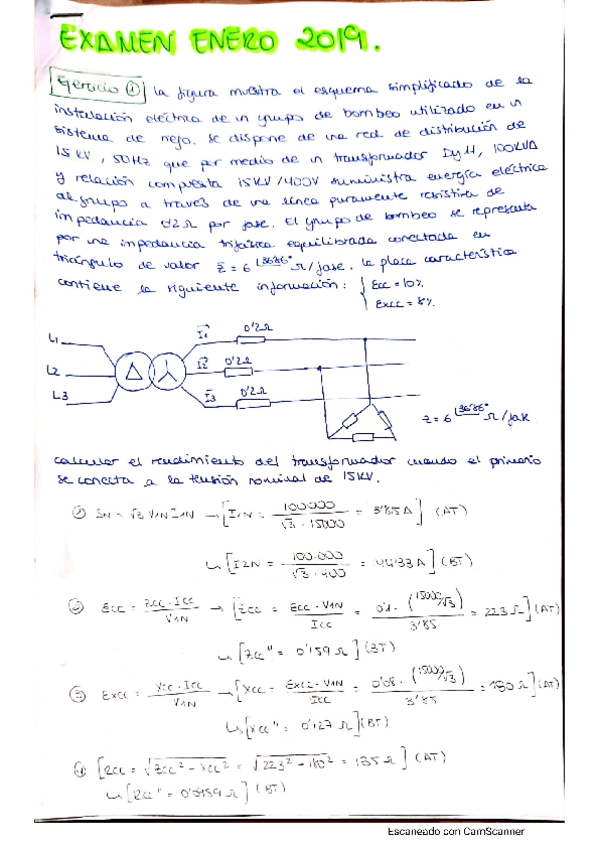 EXAMEN ENERO 2019.
Ejercicio ① La figura muestra el esquema simplificado de la
instalación eléctrica de un grupo de bombeo utilizado en un
sistema de riego. Se dispone de una red de distribución de
15 KV, 50Hz que por medio de un transformador Dy11, 100KVA
y relación compuesta 15KV/400V suministra energía eléctrica
al grupo a través de una línea puramente resistiva de
impedancia 0'2 Ω por fase. El grupo de bombeo se representa
por una impedancia trifásica equilibrada conectada en
triángulo de valor z̄ = 6 ∟36'86° Ω/fase. La placa característica
contiene la siguiente información: { Ecc = 10%
Excc = 8%
L1 I1 0'2Ω
L2 I2 0'2Ω
L3 I3 0'2Ω
z = 6 ∟36'86° Ω/fase
calcular el rendimiento del transformador cuando el primario
se conecta a la tensión nominal de 15KV.
① SN = √3 V1N I1N → [I1N = 100000 / √3 · 15000 = 3'85 A] (AT)
↳ [I2N = 100.000 / √3 · 400 = 144'33 A] (BT)
② Ecc = Zcc · Icc / V1N → [Zcc = Ecc · V1N / Icc = 0'1 · (15000/√3) / 3'85 = 223 Ω] (AT)
↳ [Zcc'' = 0'159 Ω] (BT)
③ Excc = Xcc · Icc / V1N → [Xcc = Excc · V1N / Icc = 0'08 · (15000/√3) / 3'85 = 180 Ω] (AT)
↳ [Xcc'' = 0'127 Ω] (BT)
④ [Rcc = √Zcc² - Xcc² = √223² - 180² = 135 Ω] (AT)
↳ [Rcc'' = 0'0959 Ω] (BT)
Escaneado con CamScanner